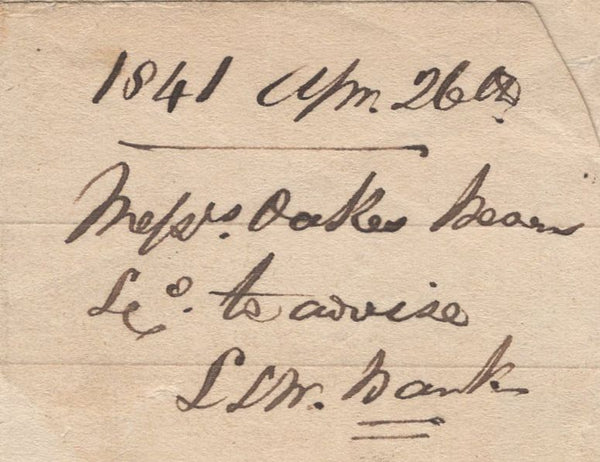 1841 Apr. 26th
Messrs. Oakes Bevan
& Co. to advise
L & W. Bank